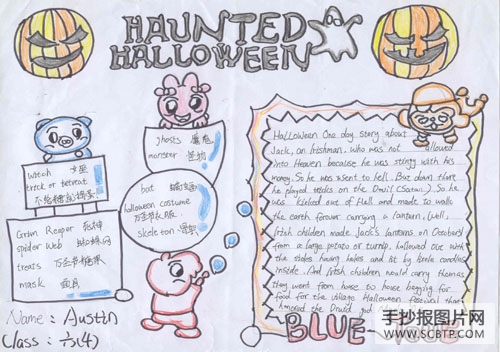 HAUNTED
HALLOWEEN
ghosts 魔鬼
monster 怪物
witch 女巫
trick or retreat
不给糖就捣蛋
bat 蝙蝠
halloween costume
万圣节衣服
skeleton 骨架
Grim Reaper 死神
spider Web 蜘蛛网
treats 万圣节糖果
mask 面具
Halloween One day story about
Jack, an Irishman, who was not allowed
into Heaven because he was stingy with his
money. So he was sent to hell. But down there
he played tricks on the Devil (Satan). So he
was kicked out of Hell and made to walk
the earth forever carrying a lantern. Well,
Irish children made Jack's lanterns on October31
from a large potato or turnip, hallowed out with
the sides having holes and lit by little candles
inside. And Irish children would carry them as
they went from house to house begging for
food for the village Halloween festival that
honored the Druid god
Name: Austin
Class: 六(4)
BLUE
手抄报图片网
WWW.SCBTP.COM